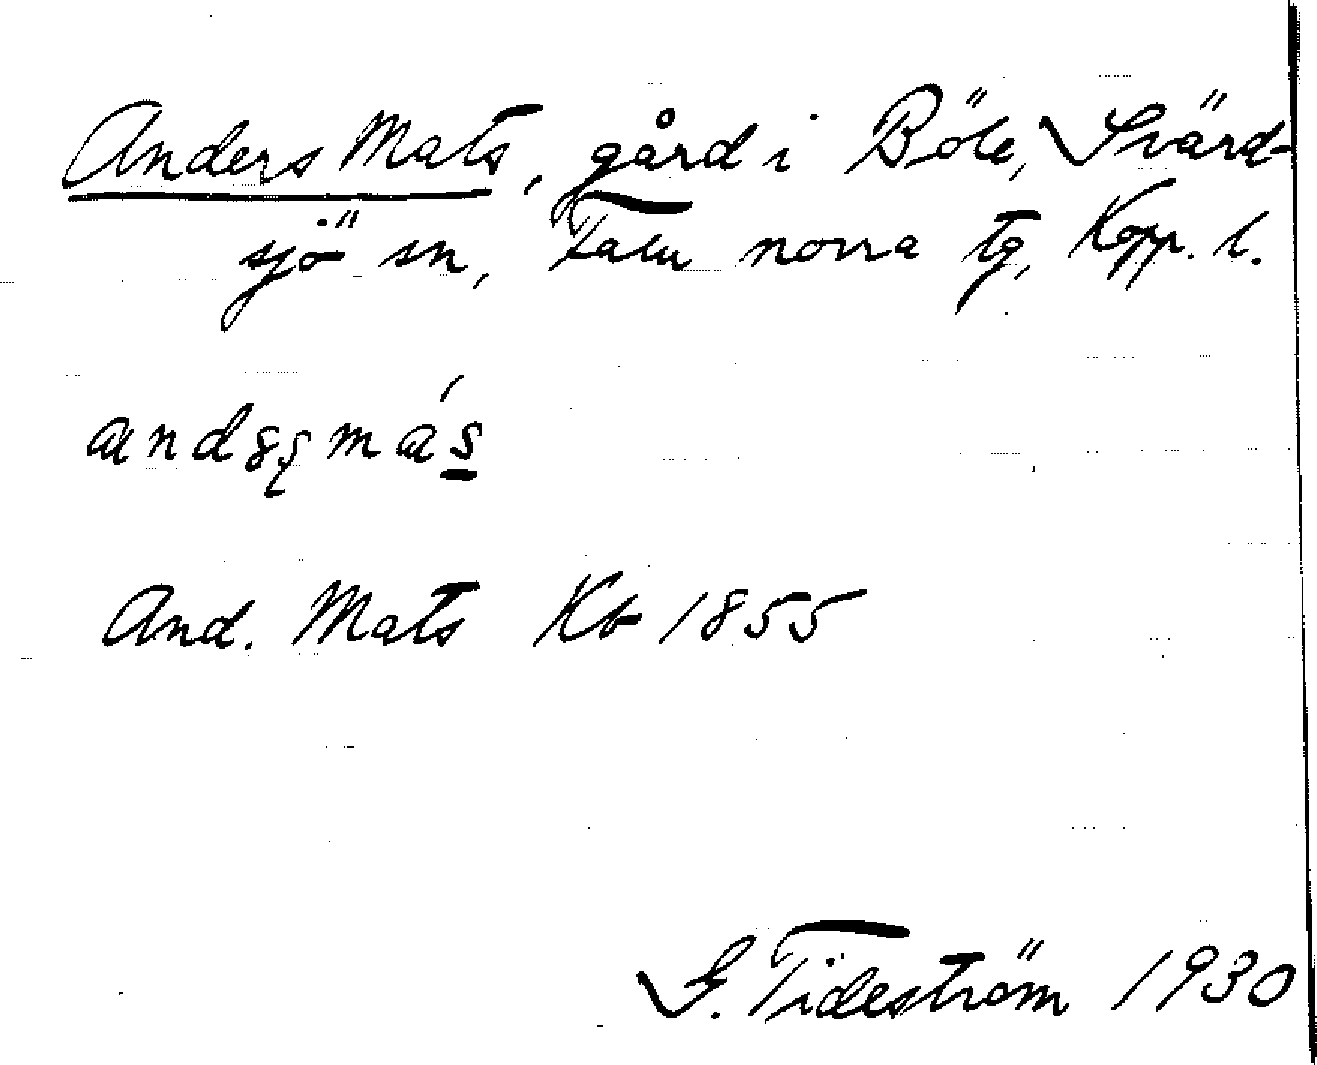 Anders Mats, gård i Böle, Svärd-
sjö sn, Falu norra tg, Kopp. l.
And. Mats Kb 1855
G. Tideström 1930